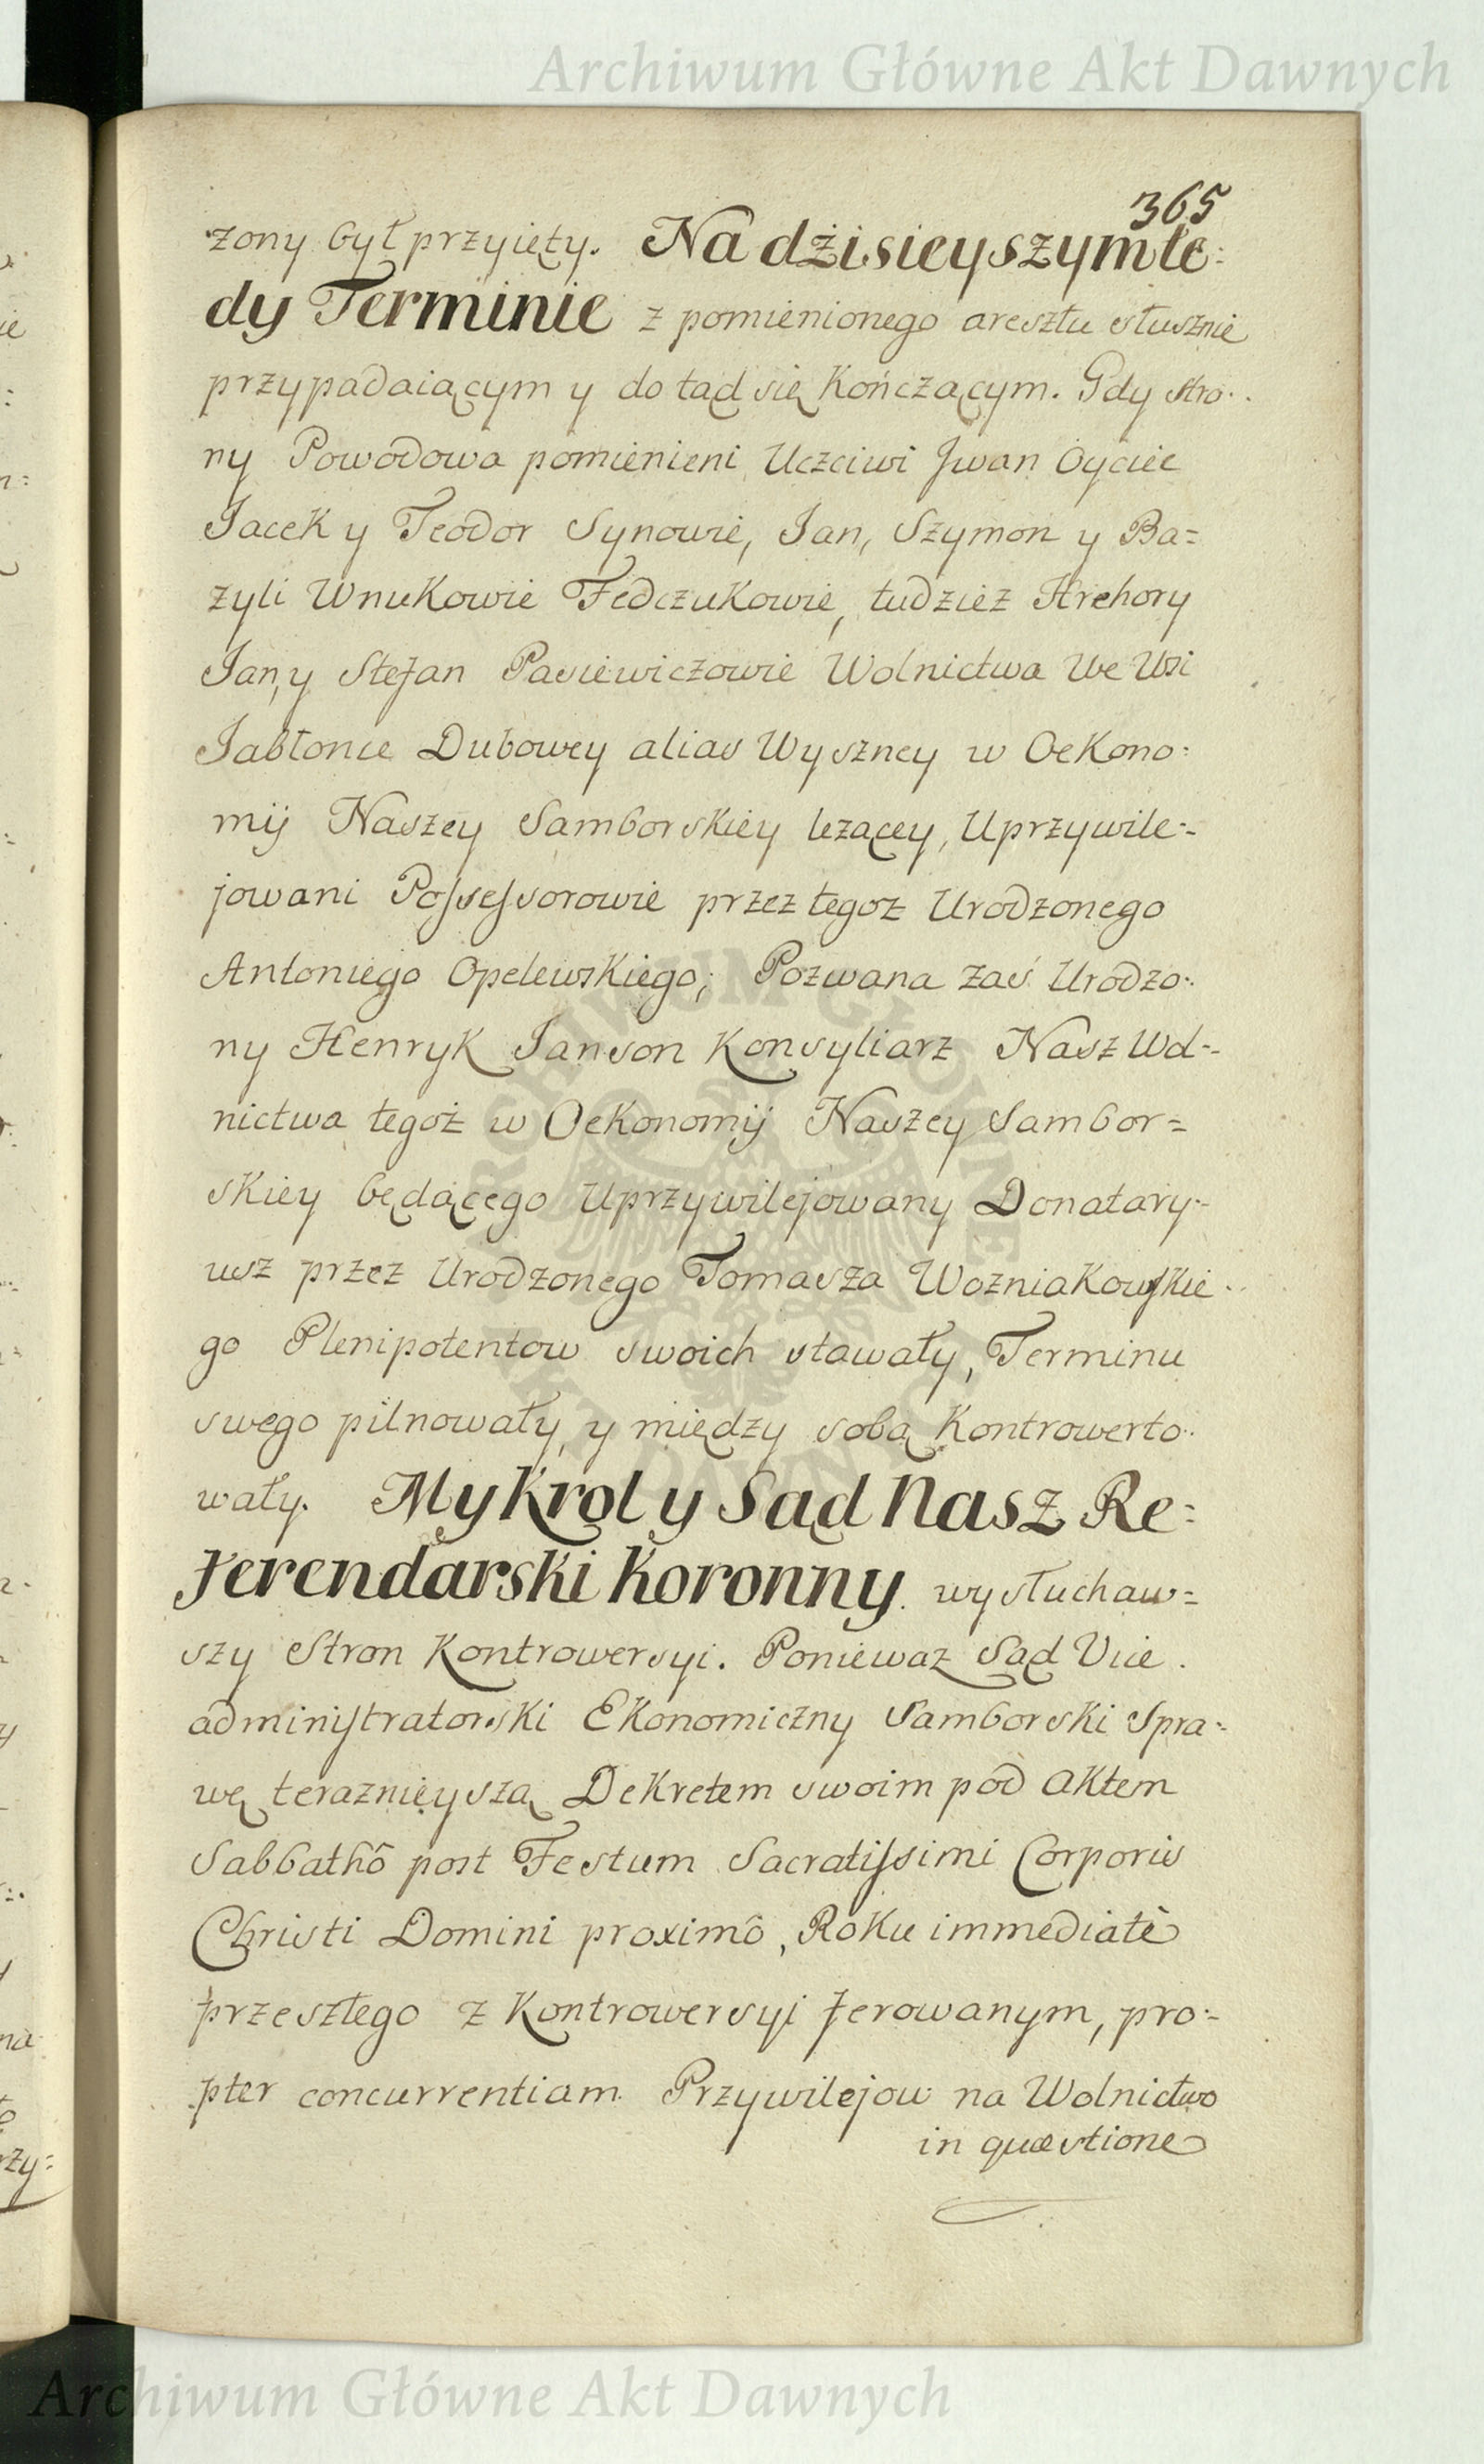 Archiwum Główne Akt Dawnych
365
żony był przyięty. Na dżisieyszym te:
dy Terminie z pomienionego aresztu słusznie
przypadaiącym y do tąd się Kończącym. Gdy stro:
ny Powodowa pomienieni Uczciwi Jwan Oyciec
Jacek y Teodor Synowie, Jan, Szymon y Ba=
zyli Wnukowie Fedczukowie, tudziez Hrehory
Jan, y Stefan Pasiewiczowie Wolnictwa We Wsi
Jabłonce Dubowey alias Wyszney w Oekono:
mij Naszey Samborskiey lezącey, Uprzywile:
jowani Possessorowie przez tegoz Urodzonego
Antoniego Opelewskiego; Pozwana zaś Urodzo:
ny Henryk Janson Konsyliarz Nasz Wol:
nictwa tegoż w Oekonomij Naszey Sambor=
skiey będącego Uprzywilejowany Donatary:
usz przez Urodzonego Tomasza Wozniakowskie:
go Plenipotentow swoich stawały, Terminu
swego pilnowały, y między sobą Kontrowerto:
wały. My Krol y Sąd Nasz Re:
ferendarski Koronny. wysłuchaw=
szy Stron Kontrowersyi. Poniewaz Sąd Vice.
administratorski Ekonomiczny Samborski Spra:
wę teraznieyszą Dekretem swoim pod Aktem
Sabbathô post Festum Sacratissimi Corporis
Christi Domini proximô, Roku immediatè
przeszłego z Kontrowersyi ferowanym, pro:
pter concurrentiam Przywilejow na Wolnictwo
in quæstione
ARCHIWUM GŁÓWNE AKT DAWNYCH
Archiwum Główne Akt Dawnych